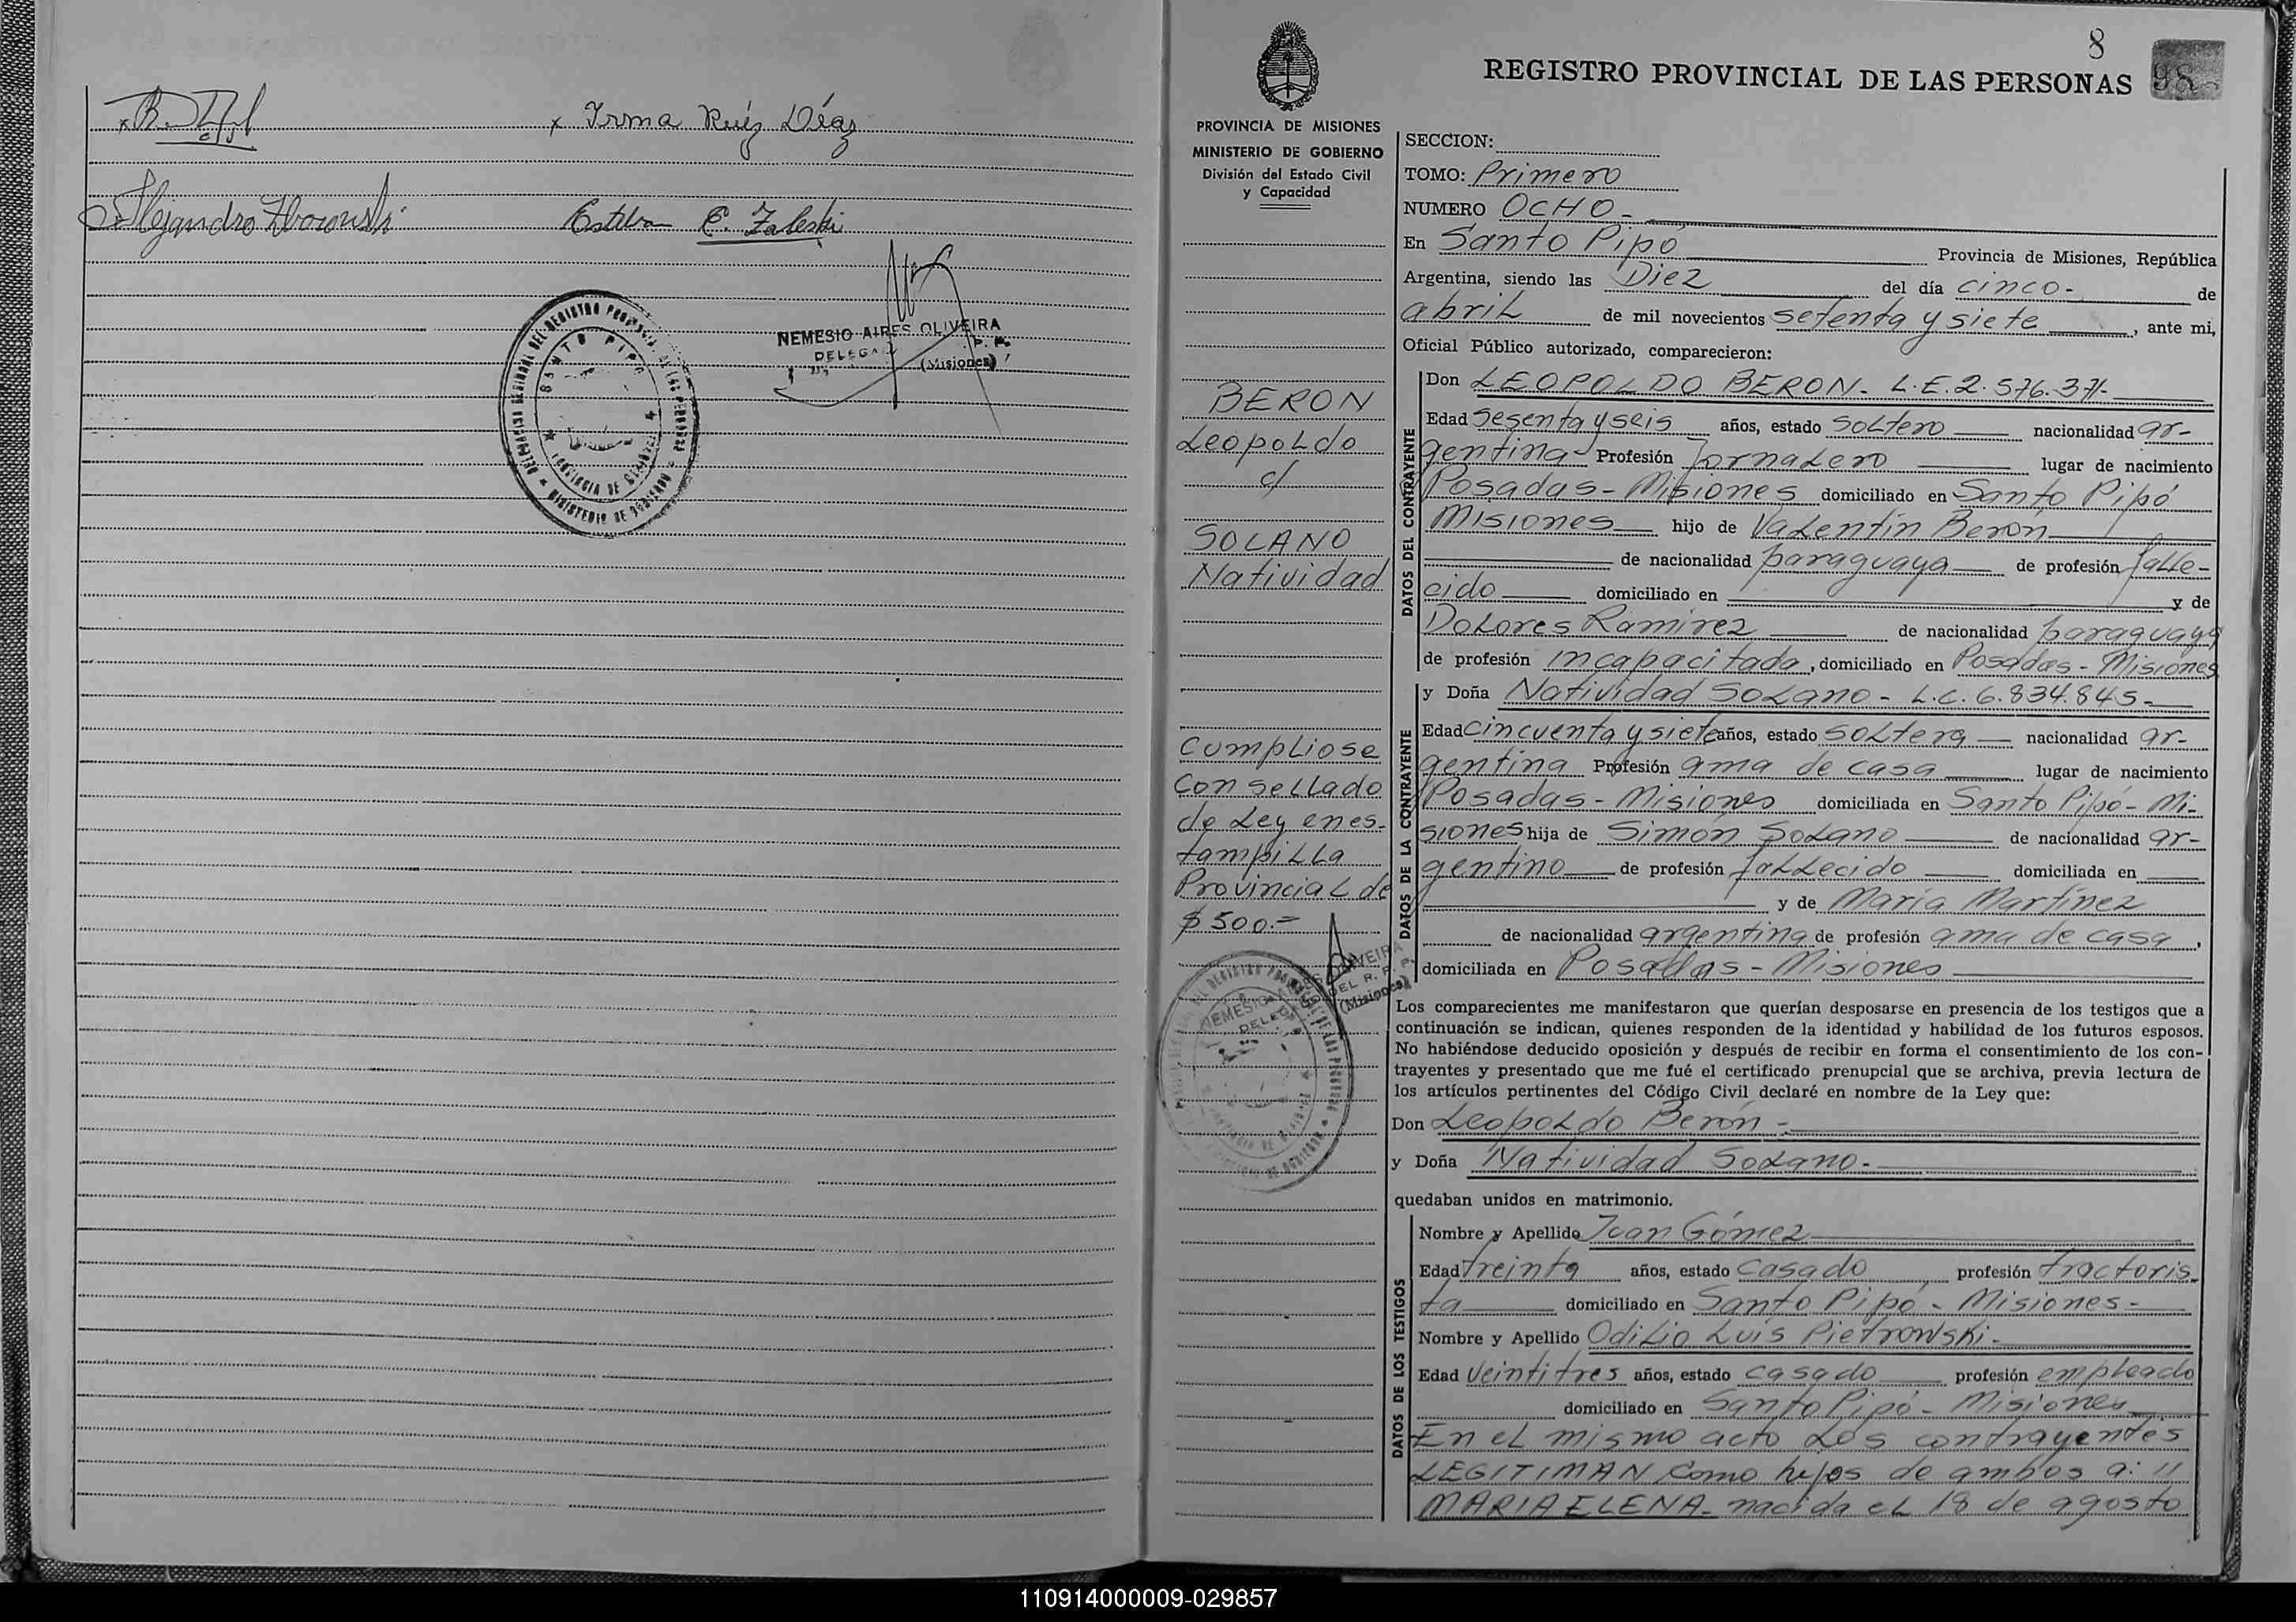 x Irma Ruíz Díaz
Alejandro Zborowski
Esteban E. Zaleski
NEMESIO AIRES OLIVEIRA
DELEGA
(Misiones)
DELEGACION REGIONAL DEL REGISTRO PROVINCIAL DE LAS PERSONAS
SANTO PIPO
PROVINCIA DE MISIONES
MINISTERIO DE GOBIERNO
8
REGISTRO PROVINCIAL DE LAS PERSONAS
98
PROVINCIA DE MISIONES
MINISTERIO DE GOBIERNO
División del Estado Civil
y Capacidad
BERON
Leopoldo
c/
SOLANO
Natividad
Cumpliose
con sellado
de Ley en es-
tampilla
Provincial de
$ 500.=
SECCION:
TOMO: Primero
NUMERO OCHO-
En Santo Pipó Provincia de Misiones, República
Argentina, siendo las Diez del día cinco- de
abril de mil novecientos setenta y siete, ante mi,
Oficial Público autorizado, comparecieron:
DATOS DEL CONTRAYENTE
Don LEOPOLDO BERON- L.E. 2.576.371-
Edad sesenta y seis años, estado soltero nacionalidad ar-
gentina- Profesión Jornalero lugar de nacimiento
Posadas-Misiones domiciliado en Santo Pipó
Misiones hijo de Valentín Berón
de nacionalidad paraguaya de profesión falle-
cido domiciliado en y de
Dolores Ramirez de nacionalidad paraguaya
de profesión incapacitada, domiciliado en Posadas-Misiones
DATOS DE LA CONTRAYENTE
y Doña Natividad Solano- L.C. 6.834.845-
Edad cincuenta y siete años, estado soltera nacionalidad ar-
gentina Profesión ama de casa lugar de nacimiento
Posadas-Misiones domiciliada en Santo Pipó-Mi-
siones hija de Simón Solano de nacionalidad ar-
gentino de profesión fallecido domiciliada en
y de María Martínez
de nacionalidad argentina de profesión ama de casa,
domiciliada en Posadas-Misiones
Los comparecientes me manifestaron que querían desposarse en presencia de los testigos que a
continuación se indican, quienes responden de la identidad y habilidad de los futuros esposos.
No habiéndose deducido oposición y después de recibir en forma el consentimiento de los con-
trayentes y presentado que me fué el certificado prenupcial que se archiva, previa lectura de
los artículos pertinentes del Código Civil declaré en nombre de la Ley que:
Don Leopoldo Berón-
y Doña Natividad Solano-
quedaban unidos en matrimonio.
DATOS DE LOS TESTIGOS
Nombre y Apellido Juan Gómez
Edad treinta años, estado casado profesión tractoris-
ta domiciliado en Santo Pipó-Misiones-
Nombre y Apellido Odilio Luis Pietrowski-
Edad veintitres años, estado casado profesión empleado
domiciliado en Santo Pipó-Misiones
En el mismo acto los contrayentes
LEGITIMAN como hijos de ambos a: "
MARIA ELENA- nacida el 18 de agosto
110914000009-029857